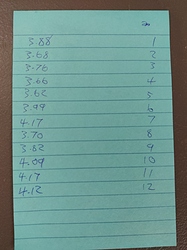 3.88 1
3.68 2
3.76 3
3.66 4
3.62 5
3.99 6
4.17 7
3.70 8
3.82 9
4.09 10
4.17 11
4.12 12